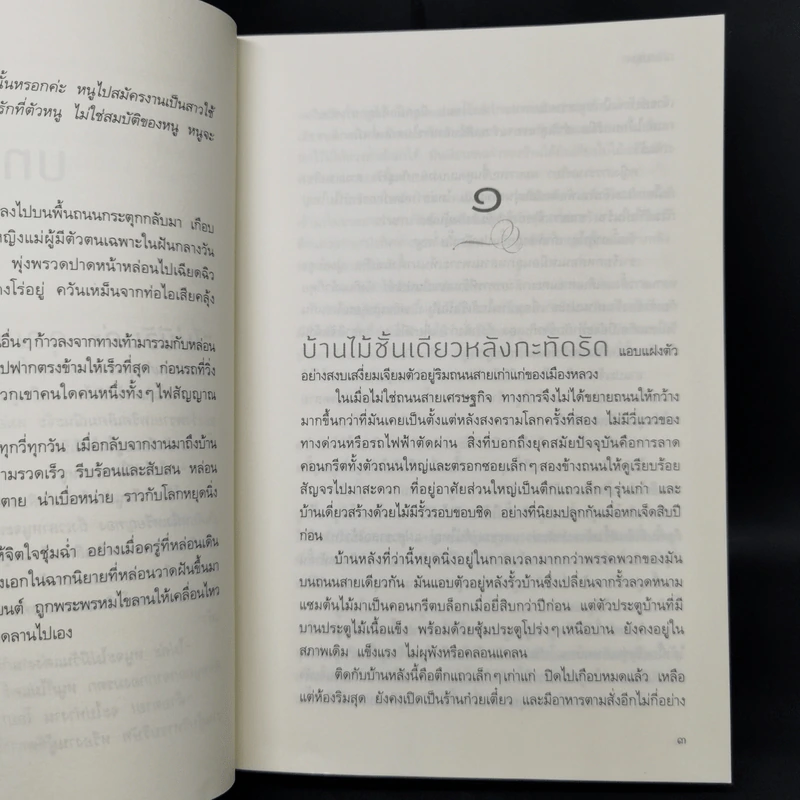 นั้นหรอกค่ะ หนูไปสมัครงานเป็นสาวใช้
รักที่ตัวหนู ไม่ใช่สมบัติของหนู หนูจะ
ลงไปบนพื้นถนนกระตุกกลับมา เกือบ
หญิงแม่ผู้มีตัวตนเฉพาะในฝันกลางวัน
พุ่งพรวดปาดหน้าหล่อนไปเฉียดฉิว
างโร่อยู่ ควันเหม็นจากท่อไอเสียคลุ้ง
อื่นๆ ก้าวลงจากทางเท้ามารวมกับหล่อน
ปฟากตรงข้ามให้เร็วที่สุด ก่อนรถที่วิ่ง
วกเขาคนใดคนหนึ่งทั้งๆ ไฟสัญญาณ
ทุกวี่ทุกวัน เมื่อกลับจากงานมาถึงบ้าน
ามรวดเร็ว รีบร้อนและสับสน หล่อน
ตาย น่าเบื่อหน่าย ราวกับโลกหยุดนิ่ง
ห้จิตใจชุ่มฉ่ำ อย่างเมื่อครู่ที่หล่อนเดิน
งเอกในฉากนิยายที่หล่อนวาดฝันขึ้นมา
ยนต์ ถูกพระพรหมไขลานให้เคลื่อนไหว
ดลานไปเอง
๑
บ้านไม้ชั้นเดียวหลังกะทัดรัด แอบแฝงตัว
อย่างสงบเสงี่ยมเจียมตัวอยู่ริมถนนสายเก่าแก่ของเมืองหลวง
ในเมื่อไม่ใช่ถนนสายเศรษฐกิจ ทางการจึงไม่ได้ขยายถนนให้กว้าง
มากขึ้นกว่าที่มันเคยเป็นตั้งแต่หลังสงครามโลกครั้งที่สอง ไม่มีวี่แววของ
ทางด่วนหรือรถไฟฟ้าตัดผ่าน สิ่งที่บอกถึงยุคสมัยปัจจุบันคือการลาด
คอนกรีตทั้งตัวถนนใหญ่และตรอกซอยเล็กๆ สองข้างถนนให้ดูเรียบร้อย
สัญจรไปมาสะดวก ที่อยู่อาศัยส่วนใหญ่เป็นตึกแถวเล็กๆ รุ่นเก่า และ
บ้านเดี่ยวสร้างด้วยไม้มีรั้วรอบขอบชิด อย่างที่นิยมปลูกกันเมื่อหกเจ็ดสิบปี
ก่อน
บ้านหลังที่ว่านี้หยุดนิ่งอยู่ในกาลเวลามากกว่าพรรคพวกของมัน
บนถนนสายเดียวกัน มันแอบตัวอยู่หลังรั้วบ้านซึ่งเปลี่ยนจากรั้วลวดหนาม
แซมต้นไม้มาเป็นคอนกรีตบล็อกเมื่อยี่สิบกว่าปีก่อน แต่ตัวประตูบ้านที่มี
บานประตูไม้เนื้อแข็ง พร้อมด้วยซุ้มประตูโปร่งๆ เหนือบาน ยังคงอยู่ใน
สภาพเดิม แข็งแรง ไม่ผุพังหรือคลอนแคลน
ติดกับบ้านหลังนี้คือตึกแถวเล็กๆ เก่าแก่ ปิดไปเกือบหมดแล้ว เหลือ
แต่ห้องริมสุด ยังคงเปิดเป็นร้านก๋วยเตี๋ยว และมีอาหารตามสั่งอีกไม่กี่อย่าง
๓